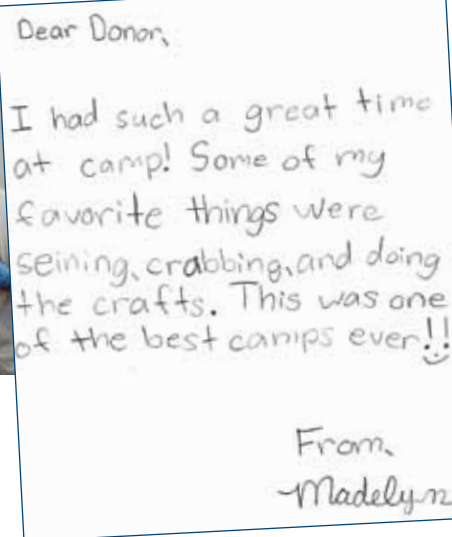 Dear Donor,
I had such a great time
at camp! Some of my
favorite things were
seining, crabbing, and doing
the crafts. This was one
of the best camps ever!!
From,
Madelyn